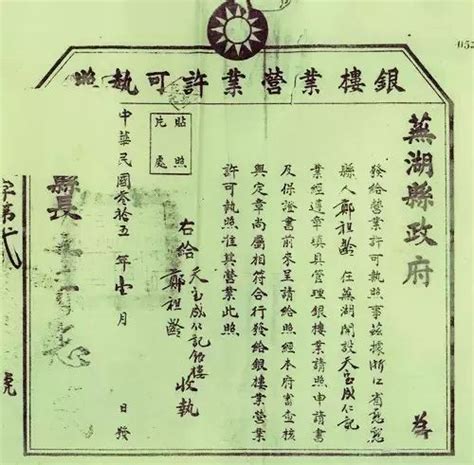 052
銀樓業營業許可執照
蕪湖縣政府 為
發給營業許可執照事茲據浙江省慈谿
縣人鄭祖齡在蕪湖開設天宝成仁記
業經遵章填具管理銀樓業請照申請書
及保證書前來呈請給照經本府審查核
與定章尚屬相符合行發給銀樓業營業
許可執照准其營業此照
右給
天宝成仁記銀樓
鄭祖齡
收執
貼照
片處
中華民國叁拾五年 月 日發
縣長
字第 號